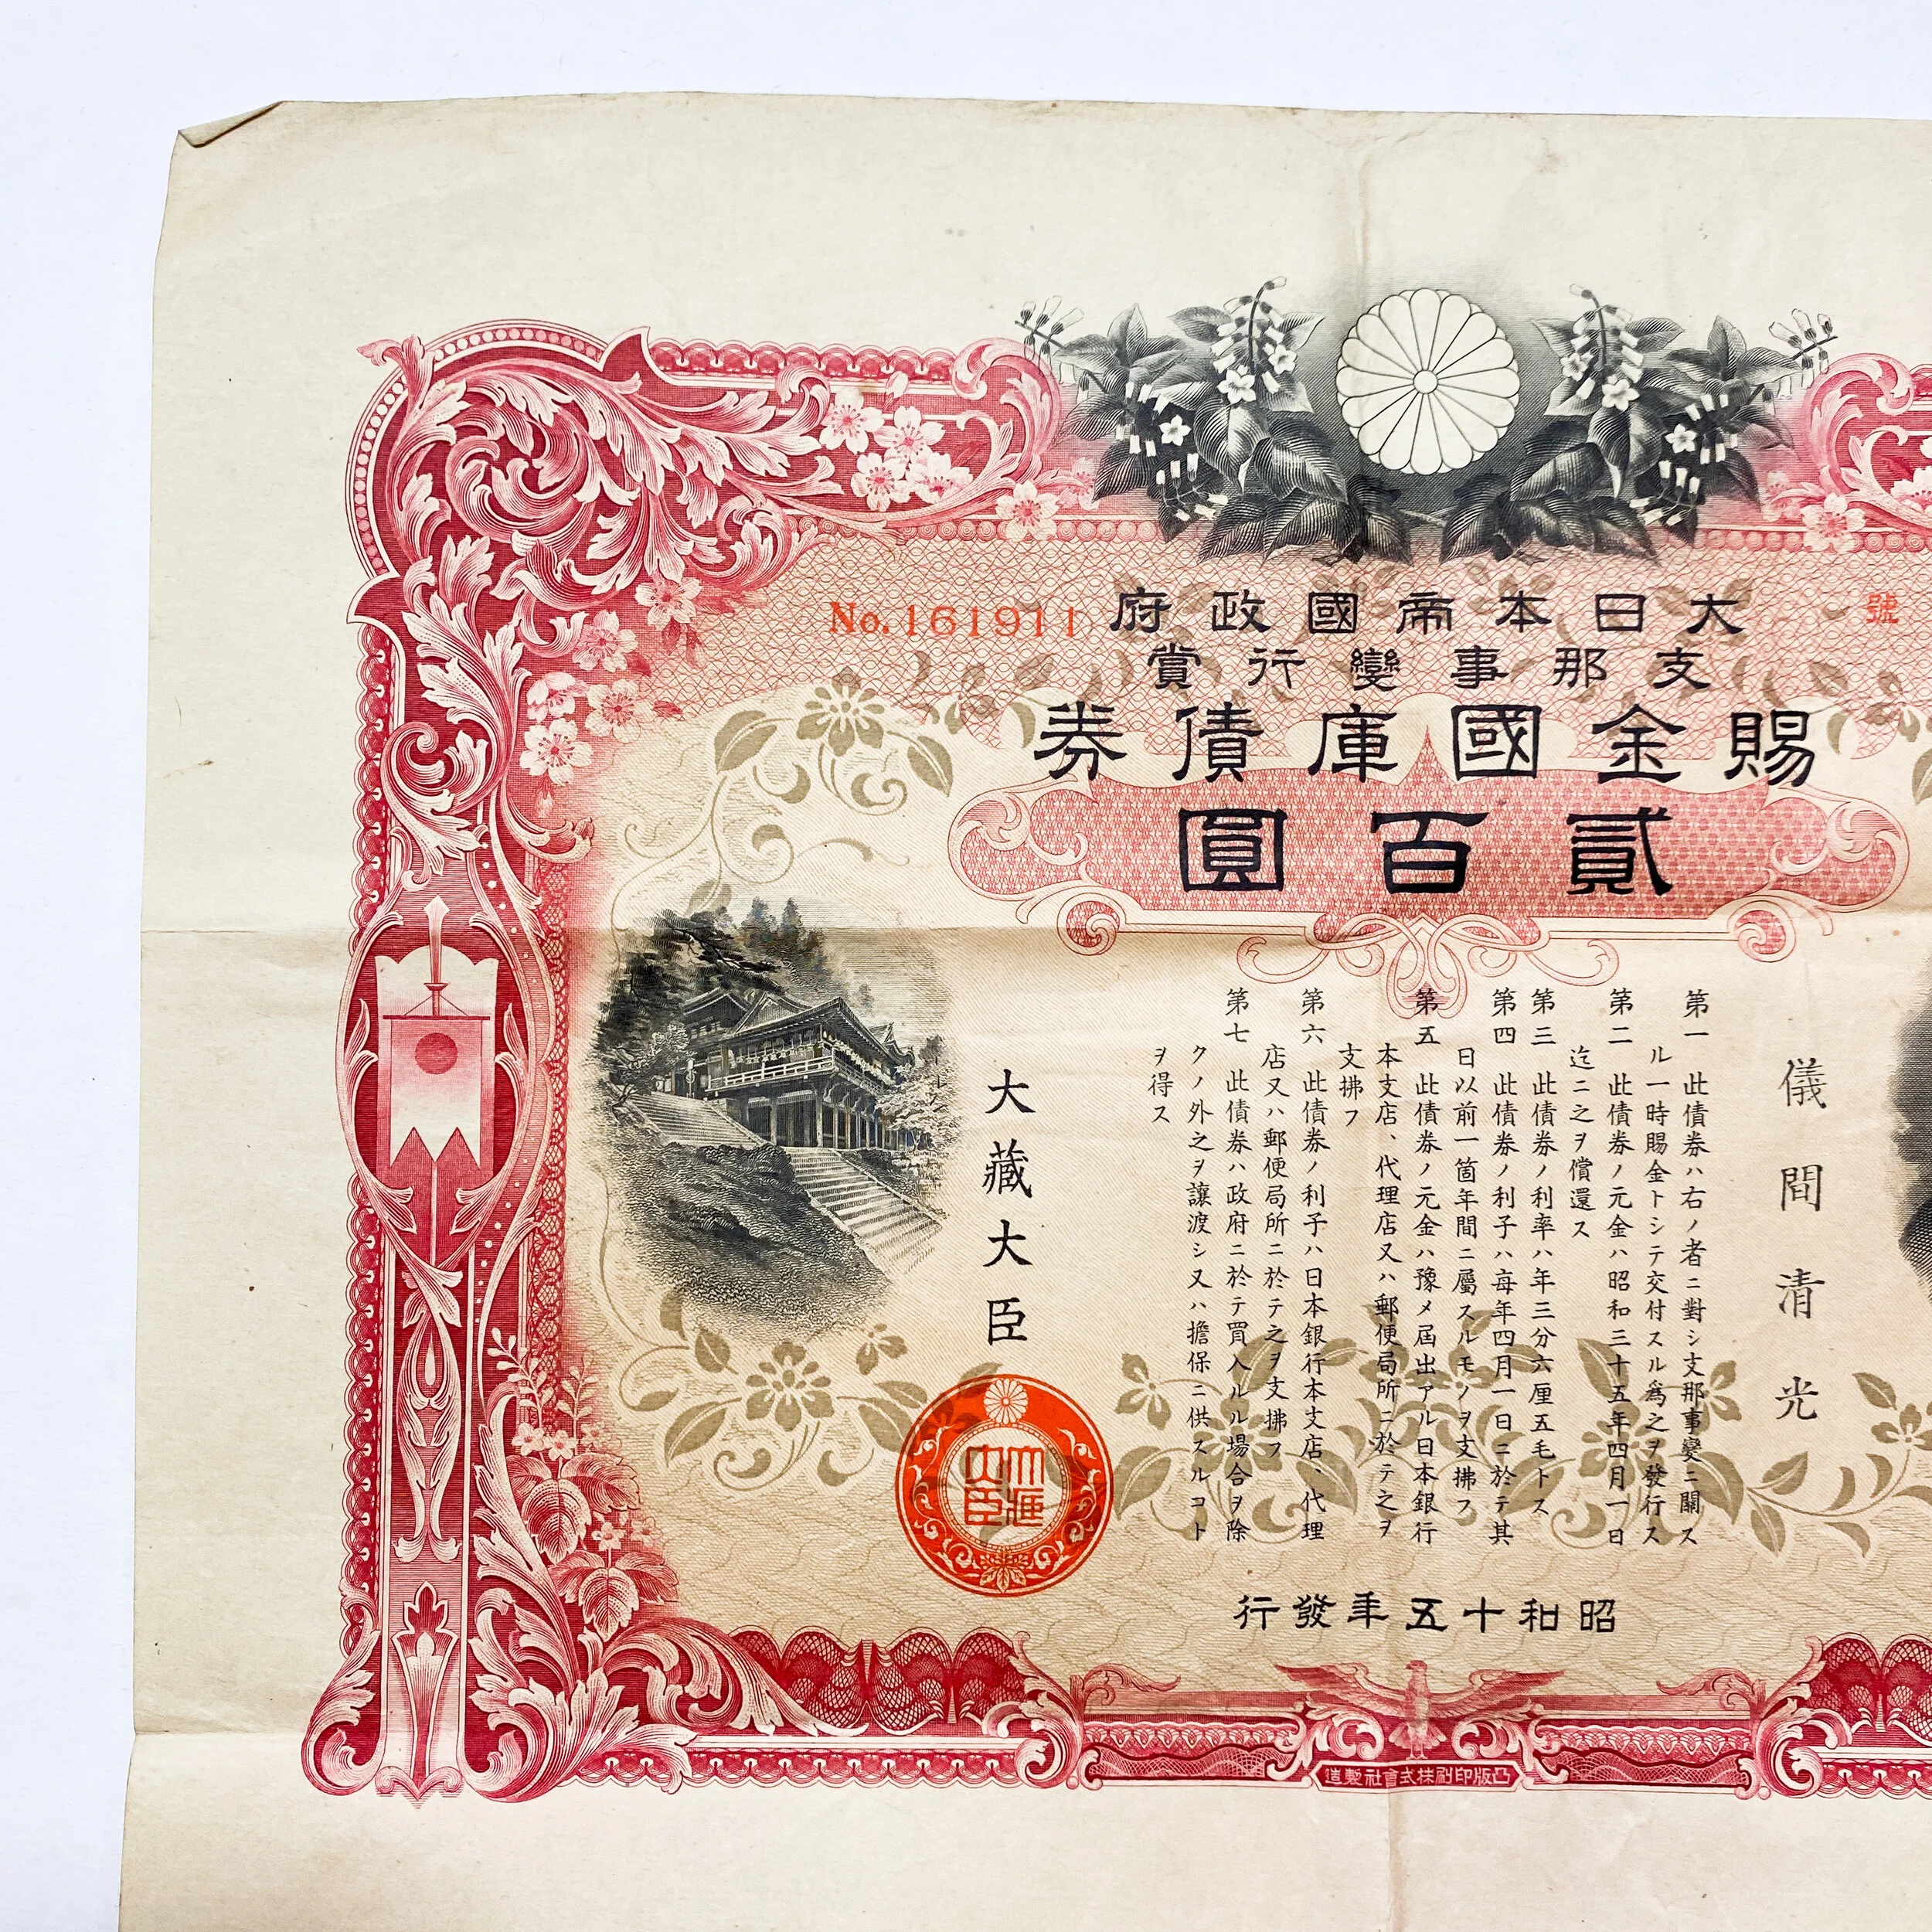 No. 161911
號
大日本帝國政府
支那事變行賞
賜金國庫債券
貳百圓
儀間清光
第一 此債券ハ右ノ者ニ對シ支那事變ニ關ス
ル一時賜金トシテ交付スル爲之ヲ發行ス
第二 此債券ノ元金ハ昭和三十五年四月一日
迄ニ之ヲ償還ス
第三 此債券ノ利率ハ年三分六厘五毛トス
第四 此債券ノ利子ハ每年四月一日ニ於テ其
日以前一箇年間ニ屬スルモノヲ支拂フ
第五 此債券ノ元金ハ豫メ屆出アル日本銀行
本支店、代理店又ハ郵便局所ニ於テ之ヲ
支拂フ
第六 此債券ノ利子ハ日本銀行本支店、代理
店又ハ郵便局所ニ於テ之ヲ支拂フ
第七 此債券ハ政府ニ於テ買入ルル場合ヲ除
クノ外之ヲ讓渡シ又ハ擔保ニ供スルコト
ヲ得ス
大藏大臣
大藏
大臣
昭和十五年發行
凸版印刷株式會社製造